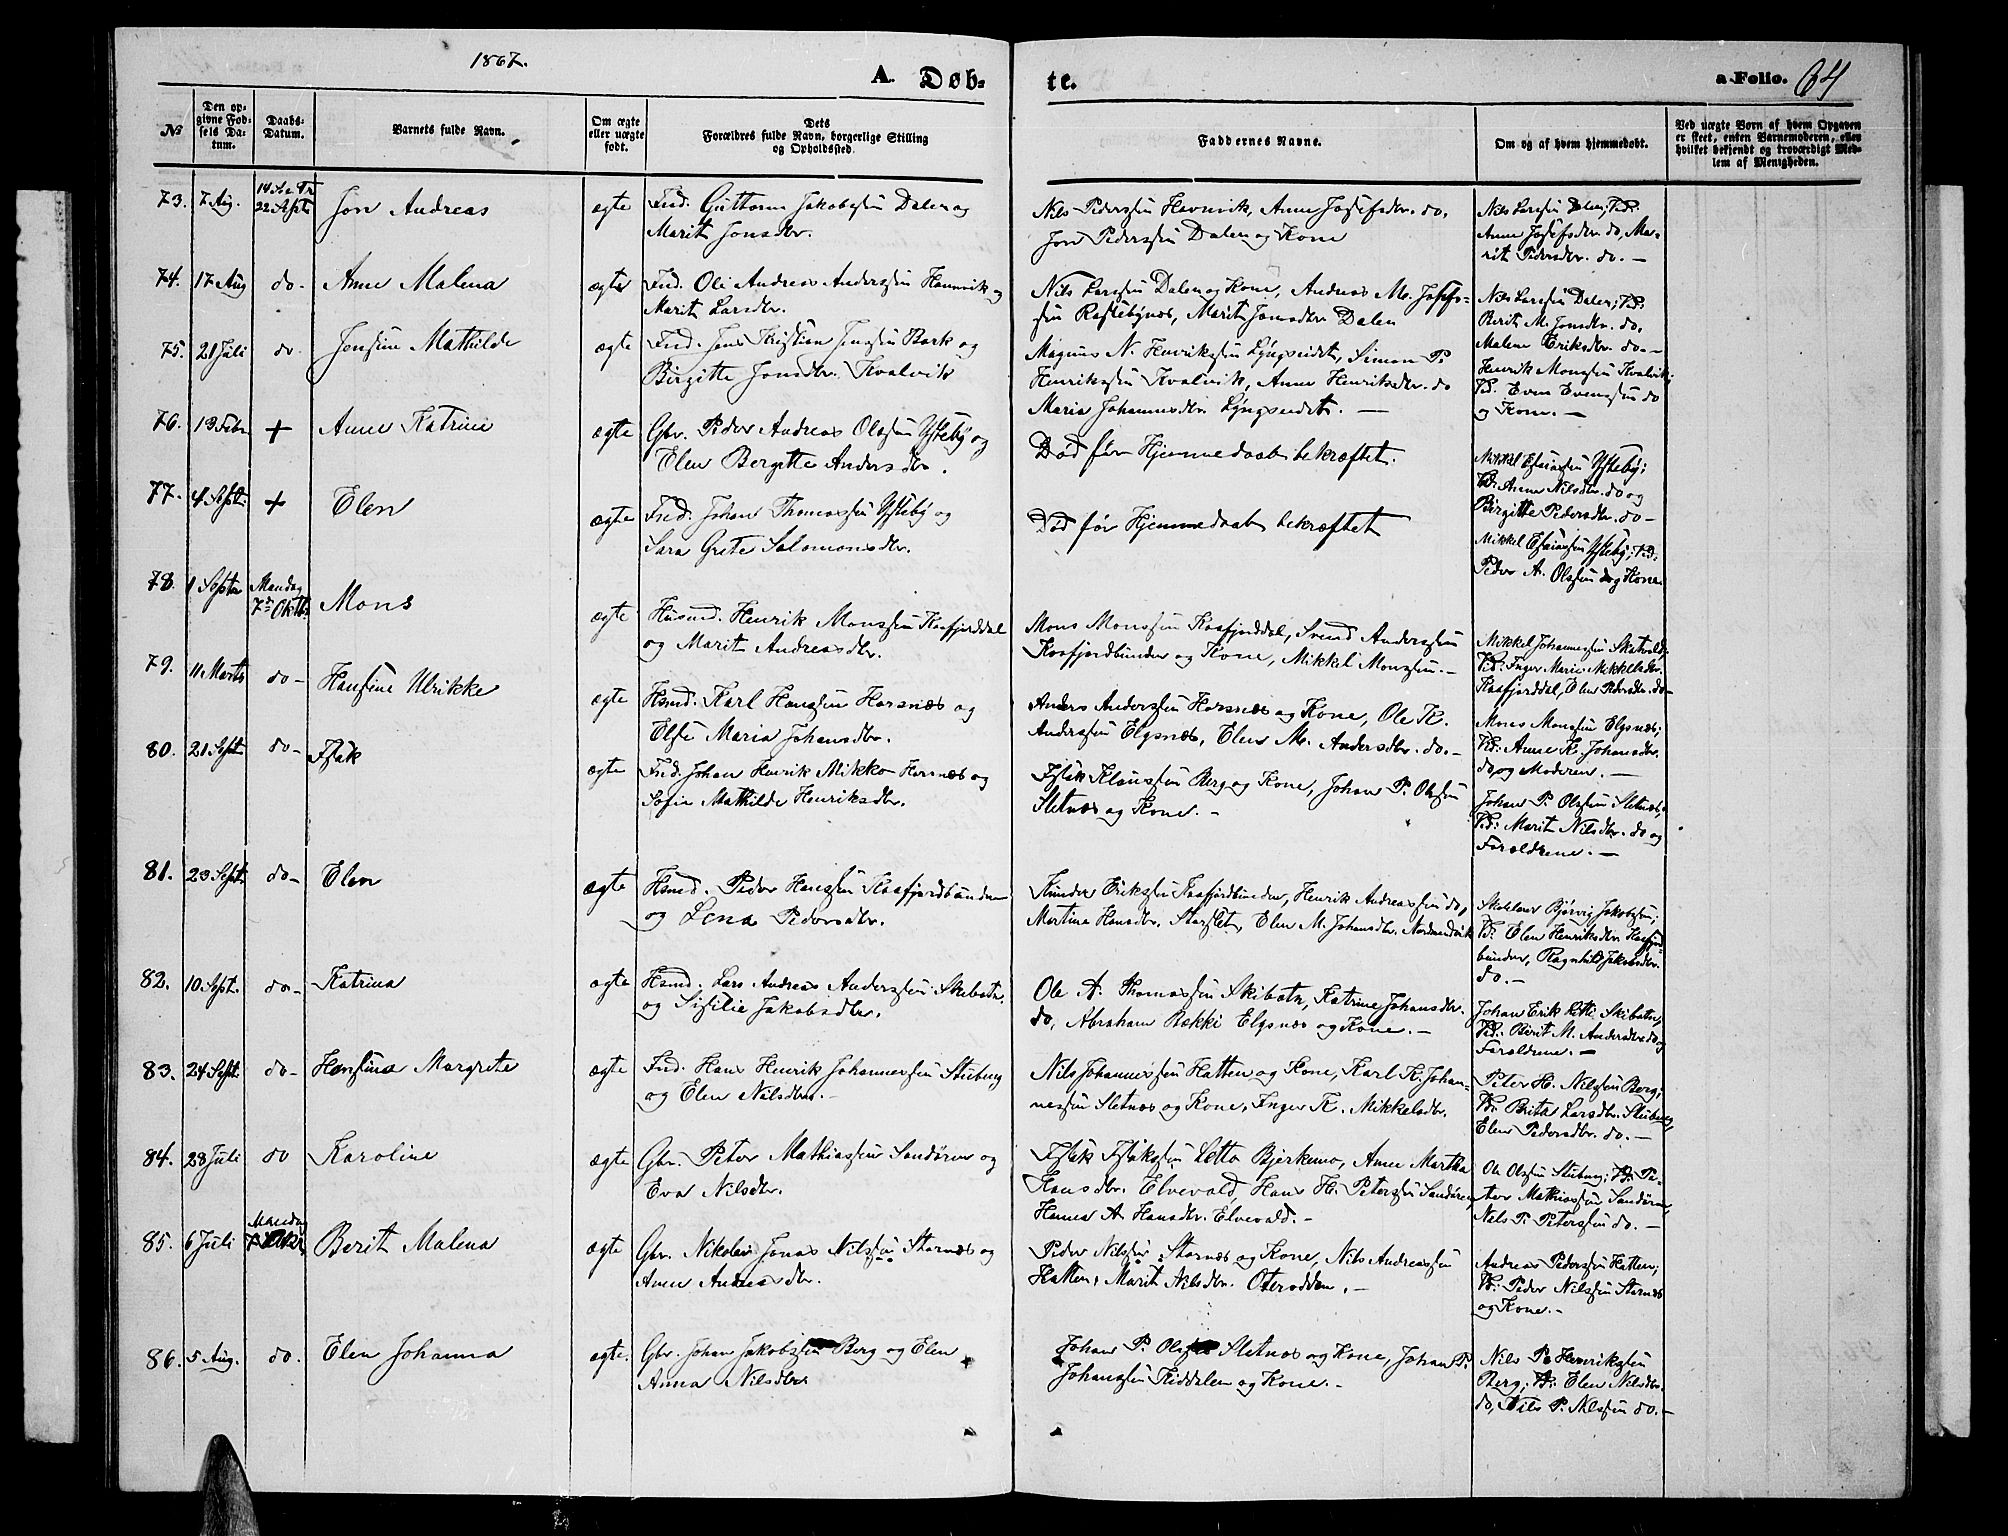 1867.
A. Døb-
te.
a Folio. 64
No
Den op-
givne Fød-
sels Da-
tum.
Daabs-
Datum.
Barnets fulde Navn.
Om ægte
eller uægte
født.
Dets
Forældres fulde Navn, borgerlige Stilling
og Opholdssted.
Faddernes Navne.
Om og af hvem hjemmedøbt.
Ved uægte Børn af hvem Opgaven
er skeet, enten Barnemoderen, eller
hvilket bekjendt og troværdigt Med-
lem af Menigheden.
73. 7 Aug. 14 S. e. Tr. 22 Septr Jon Andreas ægte Ind. Guttorm Jakobssen Dalen og
Marit Jonsdtr.
Nils Pederssen Havnvik, Anne Josefsdtr. do.
Jon Pederssen Dalen og Kone
Nils Larssen Dalen; Td:
Anne Josefsdtr do, Ma-
rit Pedersdtr. do. —
74. 17 Aug do. Anne Malena ægte Ind. Ole Andreas Anderssen Havnvik og
Marit Larsdtr.
Nils Larssen Dalen og Kone, Andreas M. Josefs-
sen Rastebynæs, Marit Jonsdtr Dalen
Nils Larssen Dalen; Td:
Berit M. Jonsdtr. do.
Malene Eriksdtr. do. —
75. 21 Juli do. Jensine Mathilde ægte Ind. Jens Kristian Jenssen Bark og
Birgitte Jonsdtr. Kvalvik
Magnus N. Henrikssen Lyngseidet, Simon P.
Henrikssen Kvalvik, Anne Henriksdtr. do
Maria Johannesdtr Lyngseidet. —
Henrik Monssen Kvalvik;
Td: Even Evenssen do
og Kone. —
76. 13 Febr + Anne Katrine ægte Gbr. Peder Andreas Olssen Ysteby og
Elen Bergitte Andersdtr.
Død før Hjemmedaaben bekræftet.
Mikkel Esaiassen Ysteby;
Td: Anne Nilsdtr. do og
Birgitte Pedersdtr. do —
77. 4 Septr. + Elen ægte Ind. Johan Thomassen Ysteby og
Sara Grete Salomonsdtr.
Død før Hjemmedaaben bekræftet
Mikkel Esaiassen Ysteby; Td:
Peder A. Olssen do og Kone
78. 1 Septr Mandag 7de Oktbr. Mons ægte Husmd. Henrik Monssen Kaafjorddal
og Marit Andreasdtr.
Mons Monssen Kaafjorddal, Svend Anderssen
Kaafjordbunden og Kone, Mikkel Monssen. —
Mikkel Johannessen Skatvold;
Td: Inger Marie Mikkelsdtr.
Kaafjorddal, Elen Pedersdtr. do —
79. 11 Marts do — Hansine Ulrikke ægte Hsmd. Karl Hanssen Horsnæs og
Else Maria Johansdtr.
Anders Anderssen Horsnæs og Kone, Ole K.
Anderssen Elgsnæs, Elen M. Andersdtr. do. —
Mons Monssen Elgsnæs;
Td: Anne K. Johansdtr.
do og Moderen. —
80. 21 Sept. do — Isak ægte Ind. Johan Henrik Mikko Horsnæs og
Sofie Mathilde Henriksdtr.
Isak Klaussen Berg og Kone, Johan P. Olssen
Sletnæs og Kone. —
Johan P. Olssen Sletnæs;
Td: Marit Nilsdtr. do og
Forældrene. —
81. 23 Sept. do — Elen ægte Hsmd. Peder Hanssen Kaafjordbunden
og Lena Pedersdtr.
Gunder Erikssen Kaafjordbunden, Henrik Andreassen do,
Martine Hansdtr. Storslet, Elen M. Johansdtr. Nordmandvik
Skolelærer Bjørvig Jakobssen;
Td: Elen Henriksdtr Kaafjord-
bunden, Ragnhild Jakobsdtr.
do. —
82. 10 Sept. do — Katrina ægte Hsmd. Lars Andreas Anderssen Skibotn
og Sisilie Jakobsdtr.
Ole A. Thomassen Skibotn, Katrine Johansdtr.
do, Abraham Bække Elgsnæs og Kone. —
Johan Erik Lotti Skibotn;
Td: Berit M. Andersdtr do og
Forældrene. —
83. 24 Sept. do — Hansina Margrete ægte Ind. Hans Henrik Johannessen Stubeng
og Elen Nilsdtr. —
Nils Johannessen Hatten og Kone, Karl K. Johan-
nessen Sletnæs og Kone, Inger K. Mikkelsdtr.
Peter H. Nilssen Berg;
Td: Brita Larsdtr. Stubeng,
Elen Pedersdtr. do. —
84. 28 Juli do Karoline ægte Gbr. Peter Mathiassen Sandøren og
Eva Nilsdtr.
Isak Isakssen Lotto Bjerkemo, Anne Martha
Hansdtr. Elvevold, Hans H. Peterssen Sandøren,
Hanna A. Hansdtr. Elvevold. —
Ole Olssen Stubeng; Td: Pe-
ter Mathiassen Sandøren,
Nils P. Peterssen do. —
85. 6 Juli Mandag 7 Okt. Berit Malena ægte Gbr. Nikolai Jonas Nilssen Stornæs og
Anne Andreasdtr.
Peder Nilssen Stornæs og Kone, Nils Andreassen
Hatten, Marit Nilsdtr. Oteroddem. —
Andreas Pederssen Hatten;
Td: Peder Nilssen Stornæs
og Kone. —
86. 5 Aug. do. Elen Johanna ægte. Gbr. Johan Jakobssen Berg og Elen
Anna Nilsdtr.
Johan P. Olssen Sletnæs og Kone, Johan P.
Johanssen Kiddalen og Kone. —
Nils P. Henrikssen
Berg; Td: Elen Nilsdtr.
do, Nils P. Nilssen do. —